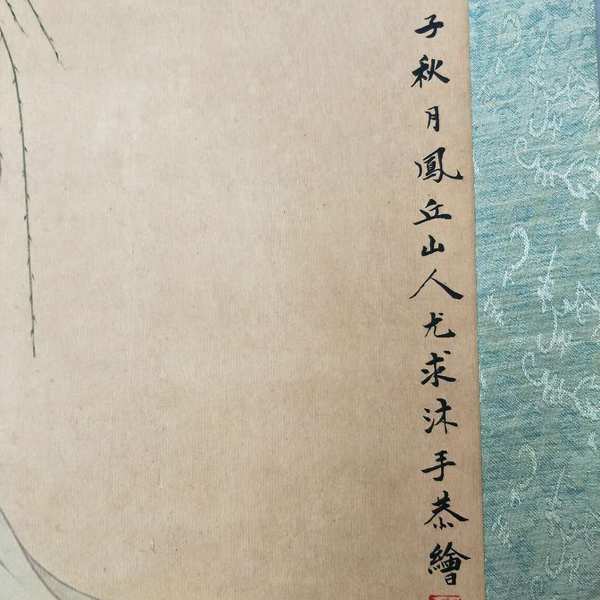 子秋月鳳丘山人尤求沐手恭繪